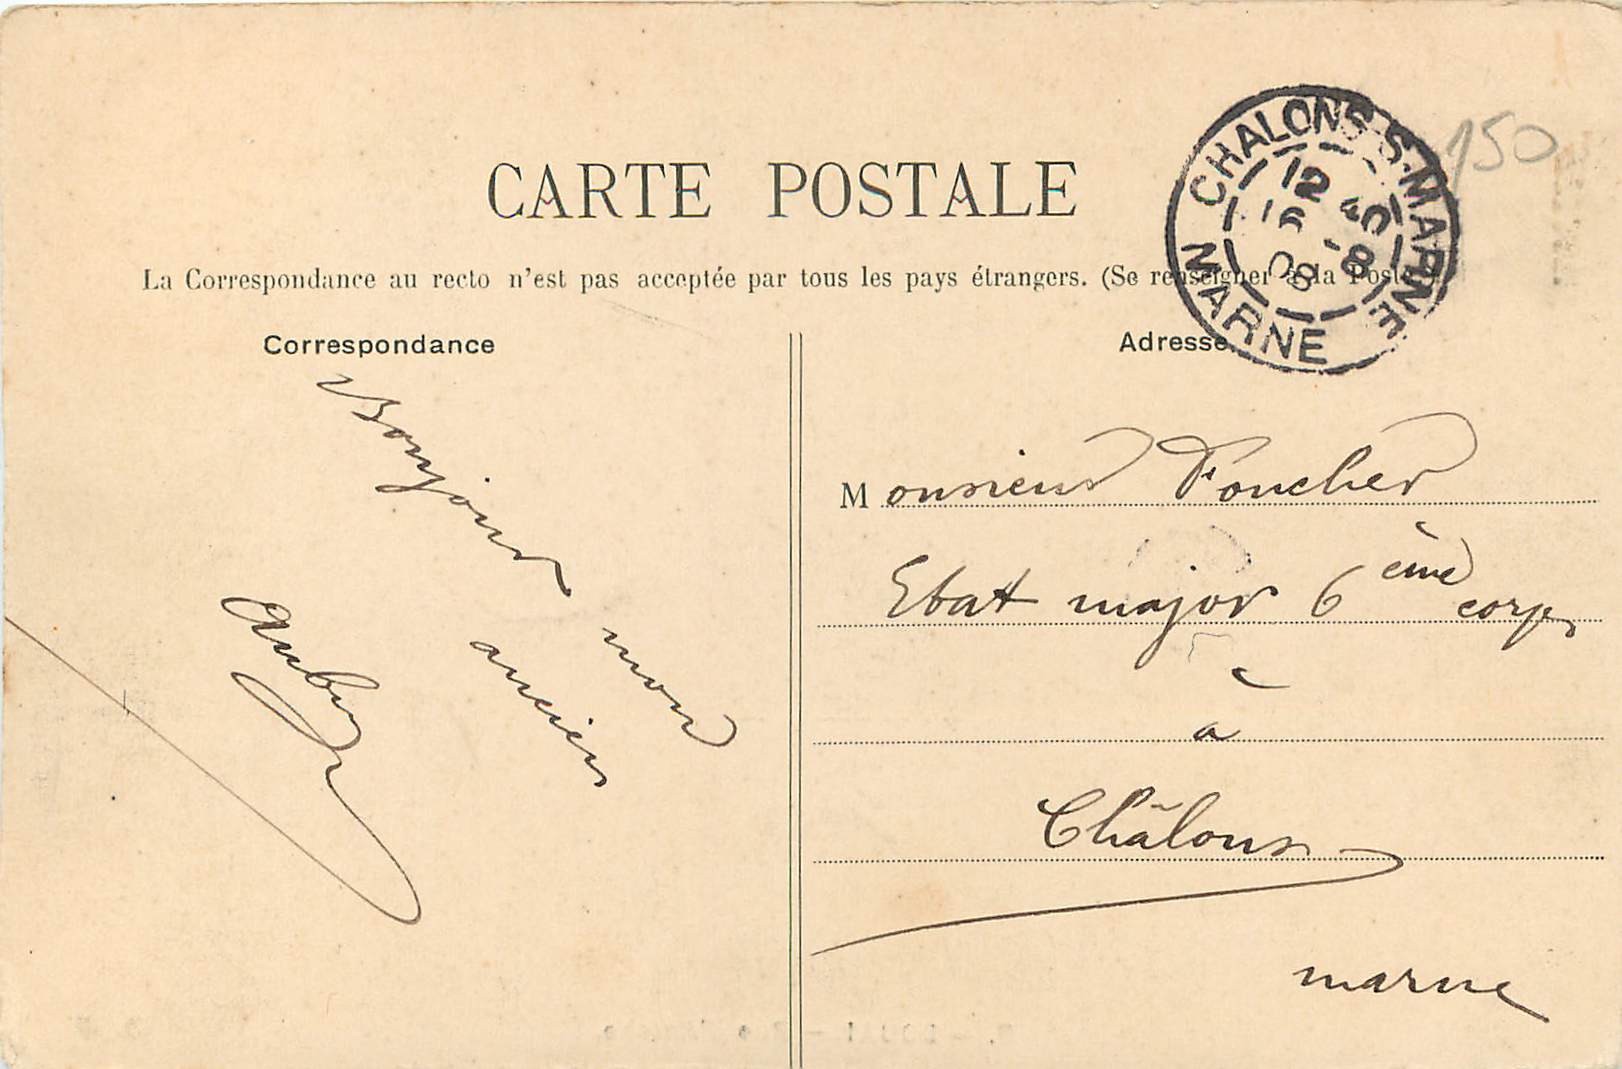 CARTE POSTALE
La Correspondance au recto n'est pas acceptée par tous les pays étrangers. (Se renseigner à la Poste
Correspondance
Bonjour
mon
ancien
Adresse
CHALONS-S-MARNE
12 40
-8
08
MARNE
150
Monsieur Foucher
Etat major 6 ème corps
à
Châlons
marne